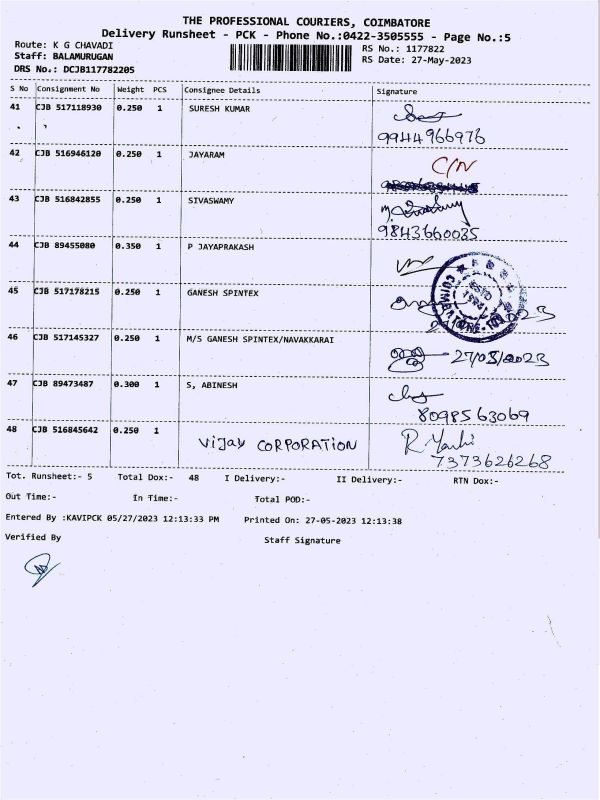 THE PROFESSIONAL COURIERS, COIMBATORE
Delivery Runsheet - PCK - Phone No.:0422-3505555 - Page No.:5
Route: K G CHAVADI RS No.: 1177822
Staff: BALAMURUGAN RS Date: 27-May-2023
DRS No.: DCJB117782205
S No Consignment No Weight PCS Consignee Details Signature
41 CJB 517118930 0.250 1 SURESH KUMAR
9944966976
42 CJB 516946120 0.250 1 JAYARAM C/N
43 CJB 516842855 0.250 1 SIVASWAMY
9843660035
44 CJB 89455080 0.350 1 P JAYAPRAKASH
45 CJB 517178215 0.250 1 GANESH SPINTEX
46 CJB 517145327 0.250 1 M/S GANESH SPINTEX/NAVAKKARAI
27/05/2023
47 CJB 89473487 0.300 1 S, ABINESH
8098563069
48 CJB 516845642 0.250 1 Vijay CORPORATION
7373626268
Tot. Runsheet:- 5 Total Dox:- 48 I Delivery:- II Delivery:- RTN Dox:-
Out Time:- In Time:- Total POD:-
Entered By :KAVIPCK 05/27/2023 12:13:33 PM Printed On: 27-05-2023 12:13:38
Verified By Staff Signature